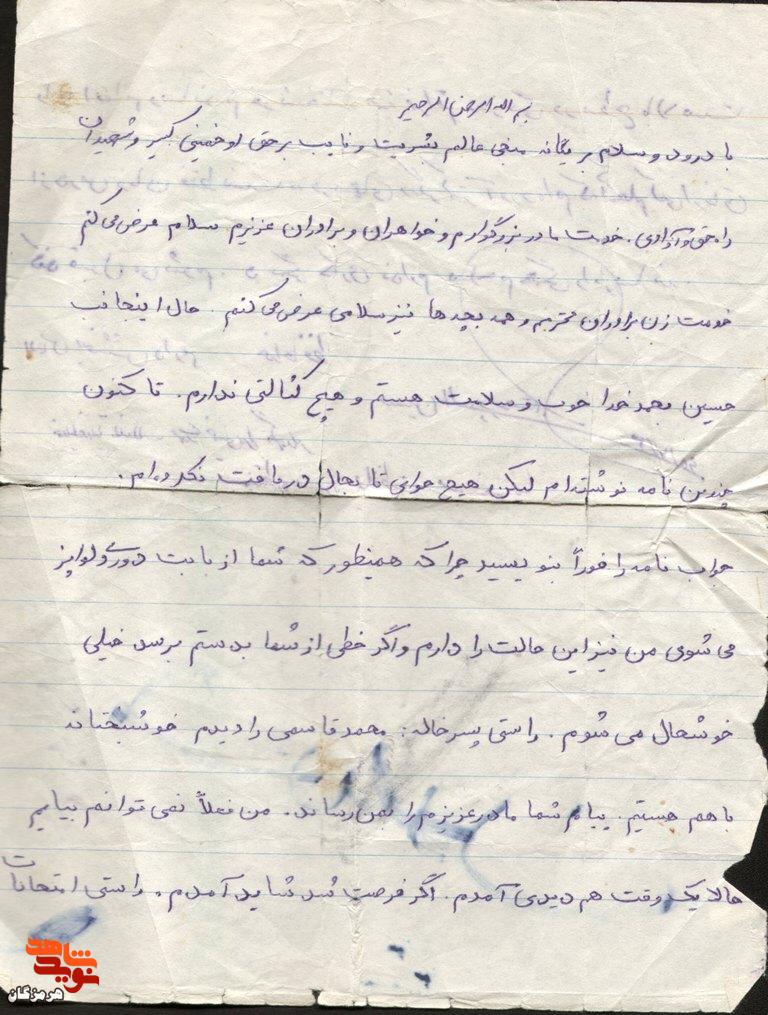 بسم الله الرحمن الرحیم
با درود و سلام بر یگانه منجی عالم بشریت و نایب بر حق او خمینی کبیر و شهیدان
راه حق و آزادی. خدمت مادر بزرگوارم و خواهران و برادران عزیزم سلام عرض می کنم
خدمت زن برادران محترم و همه بچه ها نیز سلامی عرض می کنم. حال اینجانب
حسین بحمد خدا خوب و سلامت هستم و هیچ کسالتی ندارم. تا کنون
چندین نامه نوشته ام لیکن هیچ جوابی تا بحال دریافت نکرده ام.
جواب نامه را فوراً بنویسید چرا که همینطور که شما از بابت دوری دلواپز
می شوی من نیز این حالت را دارم و اگر خطی از شما بدستم برسد خیلی
خوشحال می شوم. راستی پسر خاله: محمد قاسمی را دیدم خوشبختانه
با هم هستیم. پیام شما مادر عزیزم را بمن رساند. من فعلاً نمی توانم بیایم
حالا یک وقت هم دیدی آمدم. اگر فرصت شد شاید آمدم. راستی امتحانات
نوید شاهد
هرمزگان